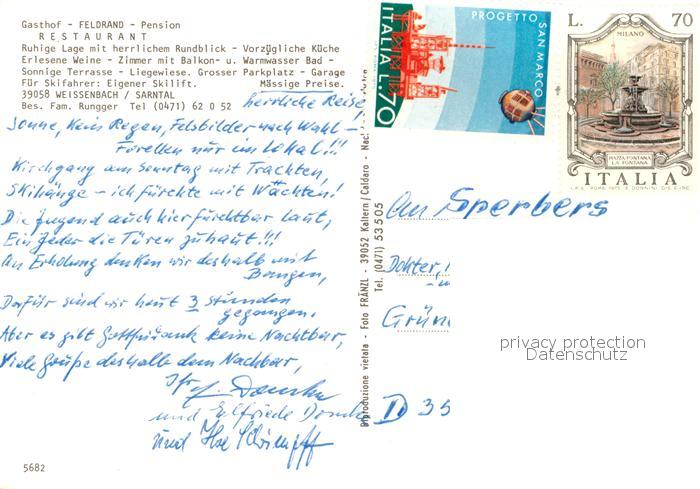 Gasthof - FELDRAND - Pension
RESTAURANT
Ruhige Lage mit herrlichem Rundblick - Vorzügliche Küche
Erlesene Weine - Zimmer mit Balkon- u. Warmwasser Bad -
Sonnige Terrasse - Liegewiese. Grosser Parkplatz - Garage
Für Skifahrer: Eigener Skilift. Mässige Preise.
39058 WEISSENBACH / SARNTAL
Bes. Fam. Rungger Tel (0471) 62 0 52
herrliche Reise!
Sonne, Kein Regen, Felsbilder nach Wahl -
Forellen nur im Lokal!!!
Kirchgang am Sonntag mit Trachten,
Skihänge - ich fürchte mit Wächten!
Die Jugend auch hier fürchtbar laut,
Ein Jeder die Türen zuhaut!!!
An Erholung denken wir deshalb mit
Bangen,
Dafür sind wir heut 3 Stunden
gegangen.
Aber es gibt Gottseidank keine Nachtbar,
Viele Grüße deshalb dem Nachbar,
Ihr
und Elfriede
und Ilse
5682
Riproduzione vietata - Foto FRÄNZL - 39052 Kaltern / Caldaro - Nac
Tel. (0471) 53 5 05
PROGETTO SAN MARCO
ITALIA L.70
L. 70
MILANO
PIAZZA FONTANA
LA FONTANA
ITALIA
An Sperbers
Dokter,
Grün
D 35
privacy protection
Datenschutz